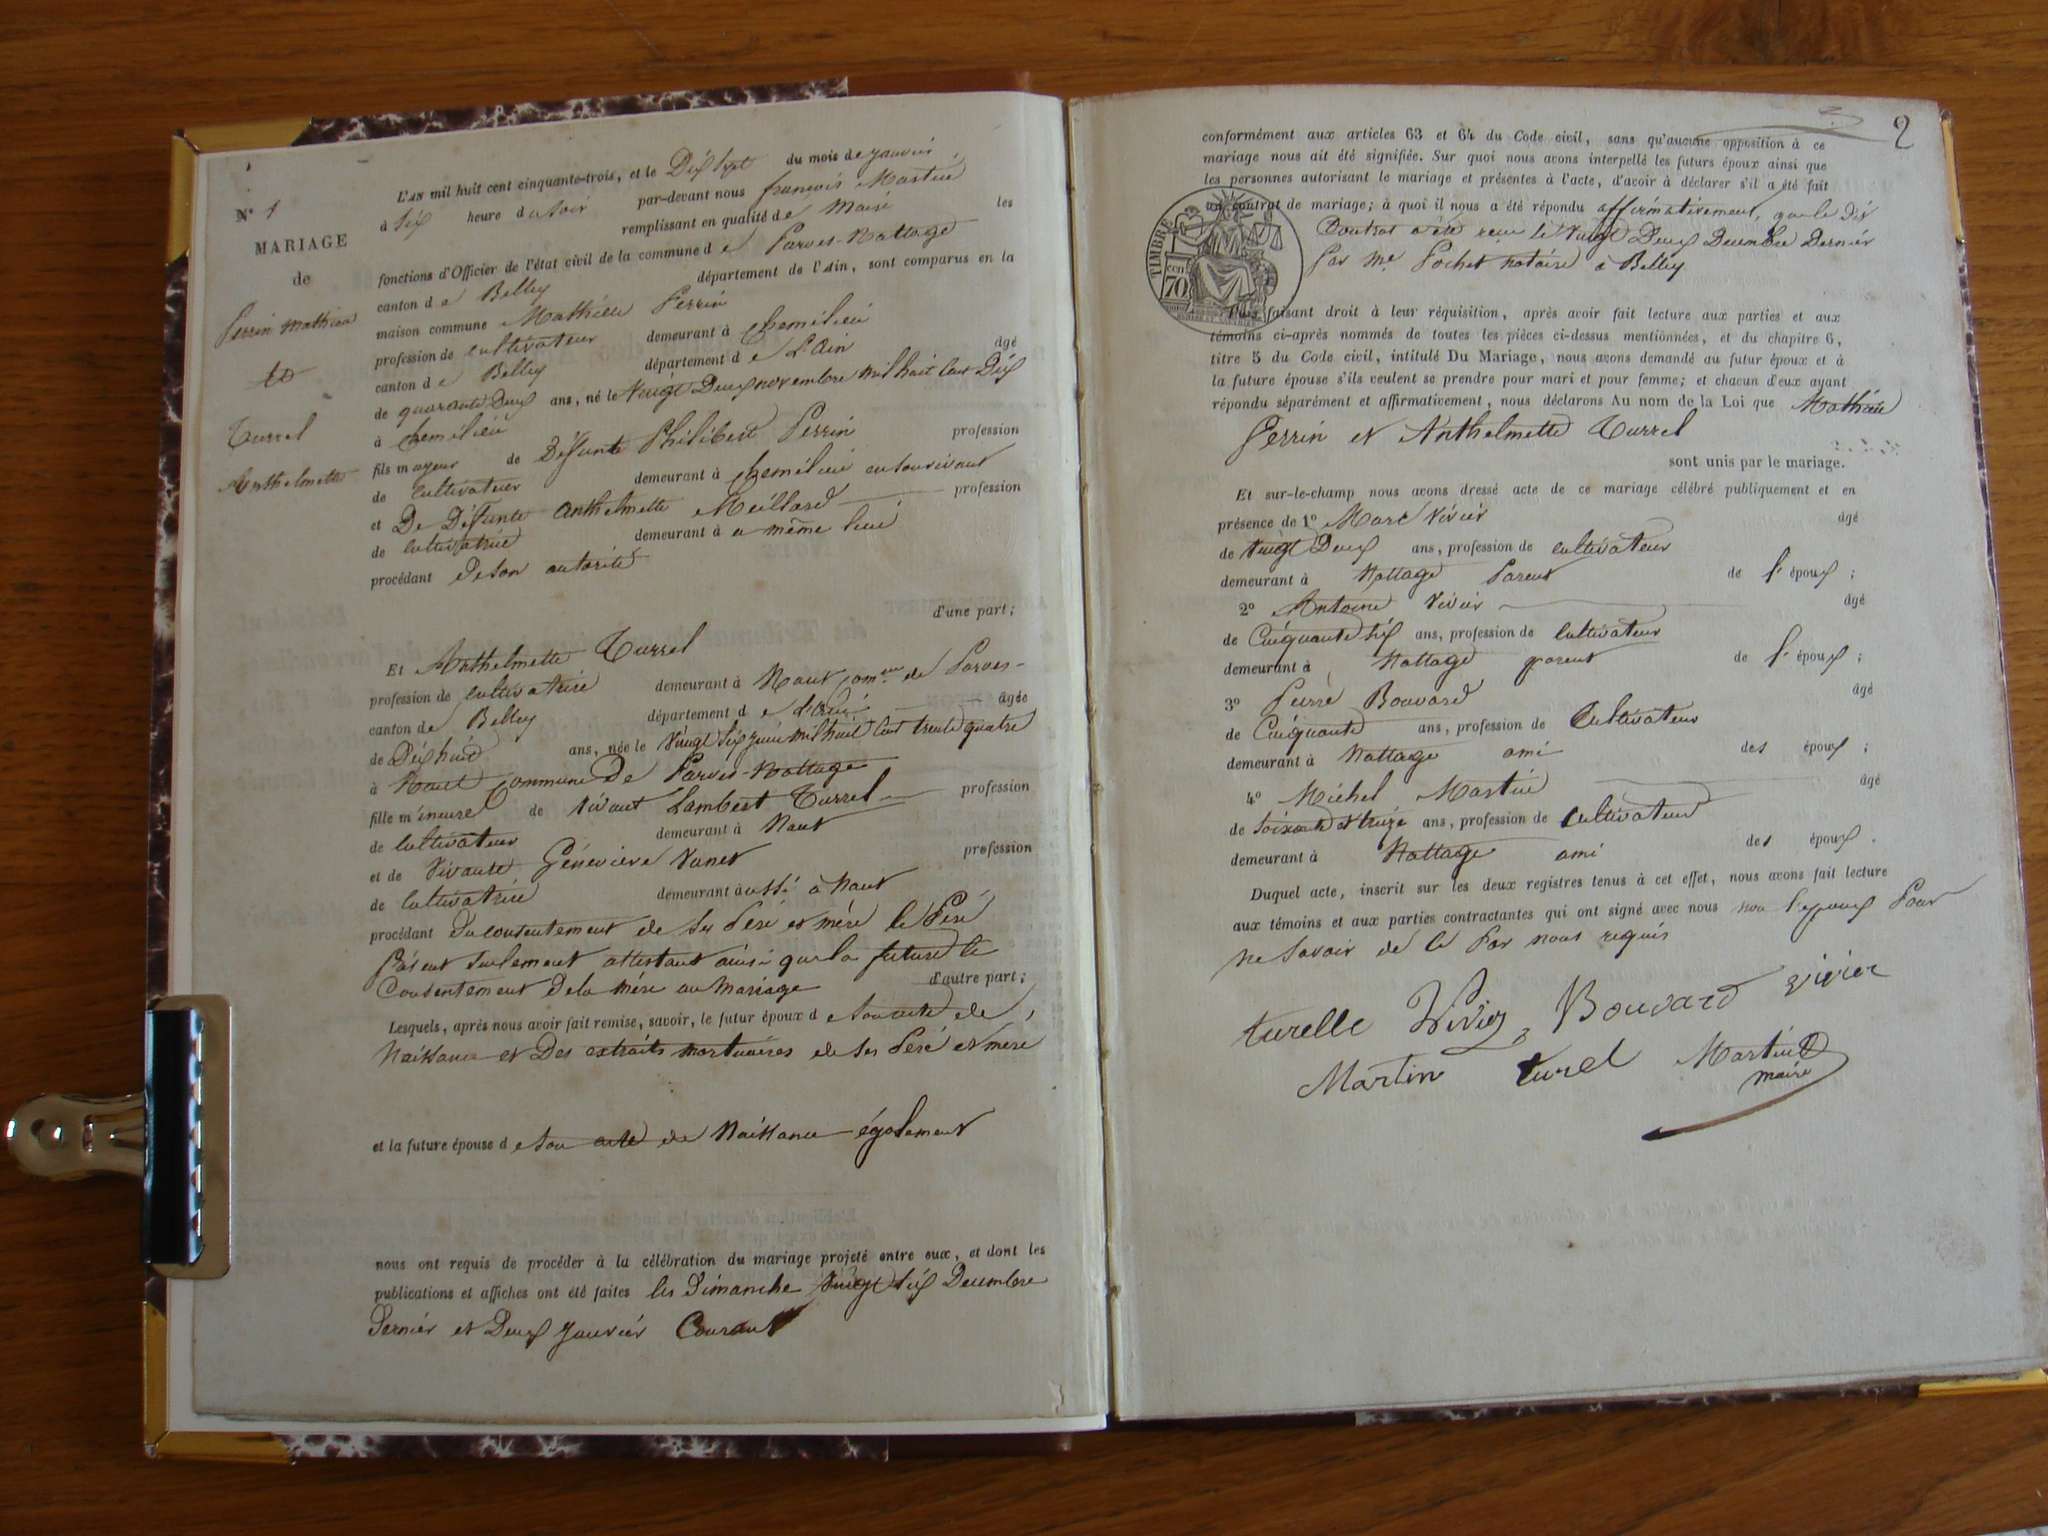 N° 1
MARIAGE
de
Perrin Mathieu
et
Turrel
Anthelmette
L'AN mil huit cent cinquante-trois, et le Dix sept du mois de janvier
à six heure du soir par-devant nous françois Martin
remplissant en qualité de Maire les
fonctions d'Officier de l'état civil de la commune d e Parves-Nattage
canton d e Belley département de l'Ain, sont comparus en la
maison commune Mathieu Perrin
profession de cultivateur demeurant à Chemélieu
canton d e Belley département d e L'Ain âgé
de quarante Deux ans, né le Vingt Deux novembre mil huit Cent Dix
à Chemélieu
fils mayeur de Défunte Philibert Perrin profession
de Cultivateur demeurant à Chemélieu en son vivant
et De Défunte Anthelmette Meillard profession
de Cultivatrice demeurant à a même lieu
procédant de son autorité
d'une part;
Et Anthelmette Turrel
profession de Cultivatrice demeurant à Nant Comne de Parves-
canton de Belley département d e L'Ain âgée
de Dix huid ans, née le Vingt six juin mil huit Cent trente quatre
à Nant Commune De Parves-Nattage
fille mineure de vivant Lambert Turrel profession
de Cultivateur demeurant à Nant
et de Vivante Géneviere Vanet profession
de Cultivatrice demeurant à ussi à Nant
procédant Du consentement de ses Péré et méré le Péré
Présent seulement attestant ainsi que la future le
Consentement De la méré au Mariage d'autre part;
Lesquels, après nous avoir fait remise, savoir, le futur époux d e son acte de
Naissance et Des extraits mortuaires de ses Péré et méré
et la future épouse d e son acte de Naissance également
nous ont requis de procéder à la célébration du mariage projeté entre eux, et dont les
publications et affiches ont été faites les Dimanche vingt six Decembre
Dernier et Deux Janvier Courant
2
conformément aux articles 63 et 64 du Code civil, sans qu'aucune opposition à ce
mariage nous ait été signifiée. Sur quoi nous avons interpellé les futurs époux ainsi que
les personnes autorisant le mariage et présentes à l'acte, d'avoir à déclarer s'il a été fait
un contrat de mariage; à quoi il nous a été répondu affirmativement, que le dit
Contrat a été reçu le Vingt Deux Decembre Dernier
Par Me Pochet notaire à Belley
TIMBRE
CEN
70
Puis faisant droit à leur réquisition, après avoir fait lecture aux parties et aux
témoins ci-après nommés de toutes les pièces ci-dessus mentionnées, et du chapitre 6,
titre 5 du Code civil, intitulé Du Mariage, nous avons demandé au futur époux et à
la future épouse s'ils veulent se prendre pour mari et pour femme; et chacun d'eux ayant
répondu séparément et affirmativement, nous déclarons Au nom de la Loi que Mathieu
Perrin et Anthelmette Turrel
sont unis par le mariage.
Et sur-le-champ nous avons dressé acte de ce mariage célébré publiquement et en
présence de 1° Marc Vivier âgé
de Vingt Deux ans, profession de Cultivateur
demeurant à Nattage Parent de l' époux ;
2° Antoine Vivier âgé
de Cinquante six ans, profession de Cultivateur
demeurant à Nattage parent de l' époux ;
3° Pierre Bouvard âgé
de Cinquante ans, profession de Cultivateur
demeurant à Nattage ami des époux ;
4° Michel Martin âgé
de soixante et treize ans, profession de Cultivateur
demeurant à Nattage ami des époux .
Duquel acte, inscrit sur les deux registres tenus à cet effet, nous avons fait lecture
aux témoins et aux parties contractantes qui ont signé avec nous non l'epoux Pour
ne Savoir de ce Par nous requis
turelle Vivier Bouvard vivier
Martin turel Martin
maire